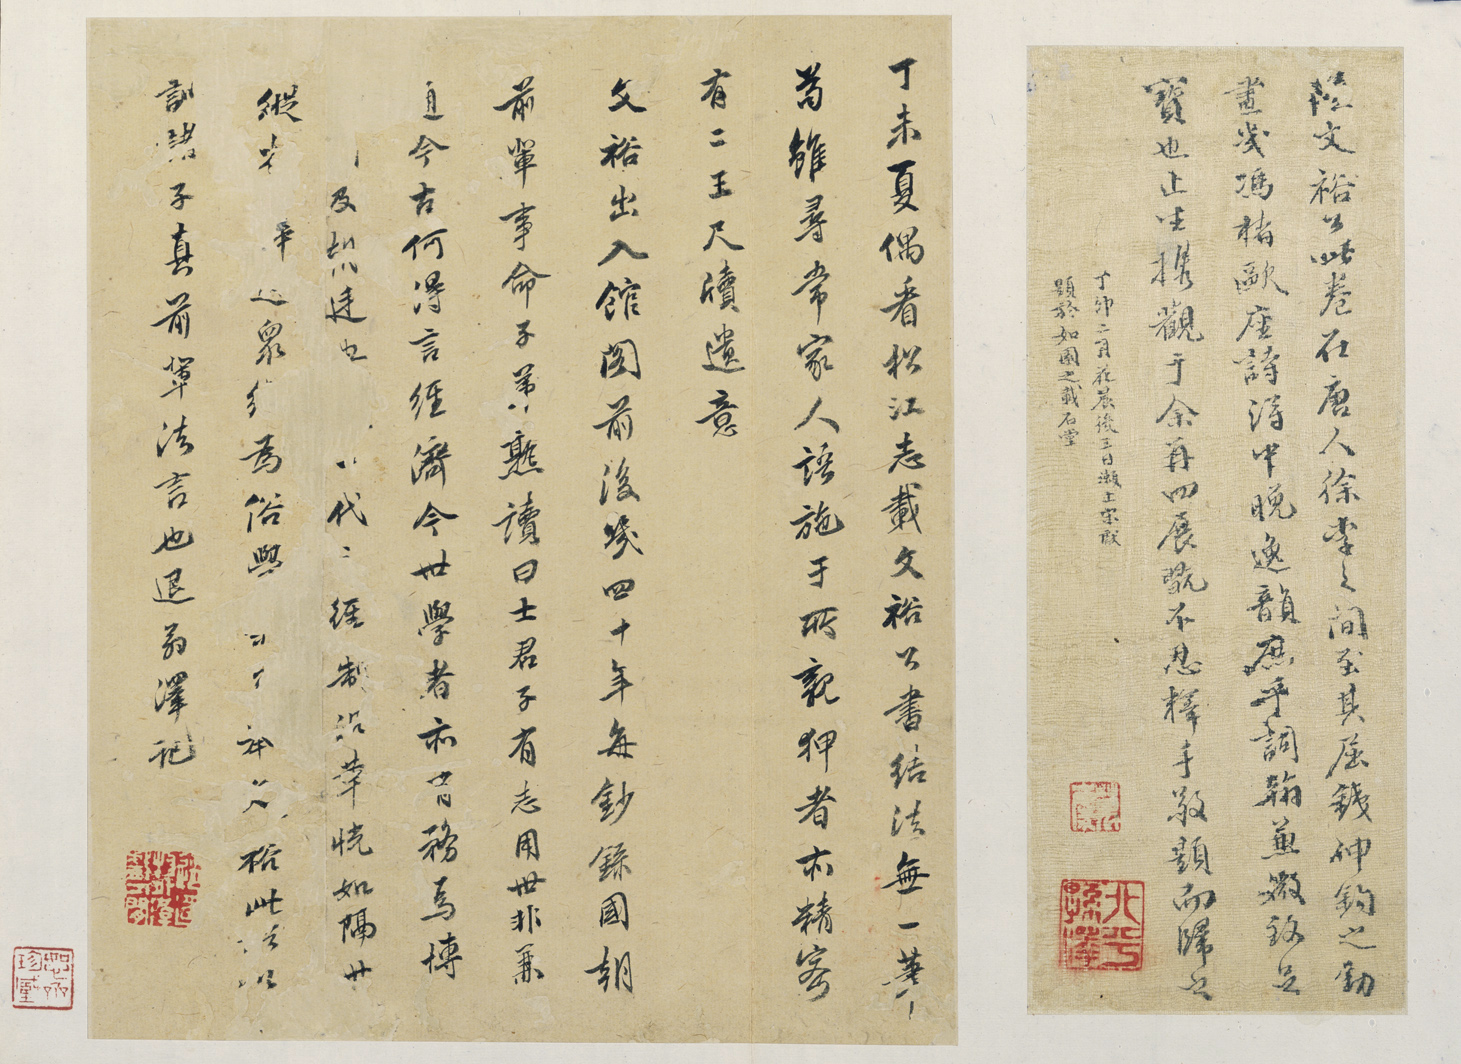 陸文裕公此卷在唐人徐李之間至其屈鐵伸鈎之勁
畫幾馮褚歐座詩得中晚逸韻庶乎詞翰兼媺致足
寶也止生攜觀于余再四展翫不忍釋手敬題而歸之
丁卯二月花晨後三日瀨上宋
題於如圃之載石堂
丁未夏偶看松江志載文裕公書結法無一筆
苟雖尋常家人語施于所親狎者亦精密
有二王尺牘遺意
文裕出入館閣前後幾四十年每鈔錄國朝
前輩事命子弟熟讀曰士君子有志用世非兼
通今古何得言經濟今世學者亦有務為博
及朝廷也 代之經制沿革恍如隔世
縱才 華 眾 為俗學 裕此法以
訓諸子真前輩法言也退翁澤記
北平
孫澤
珍